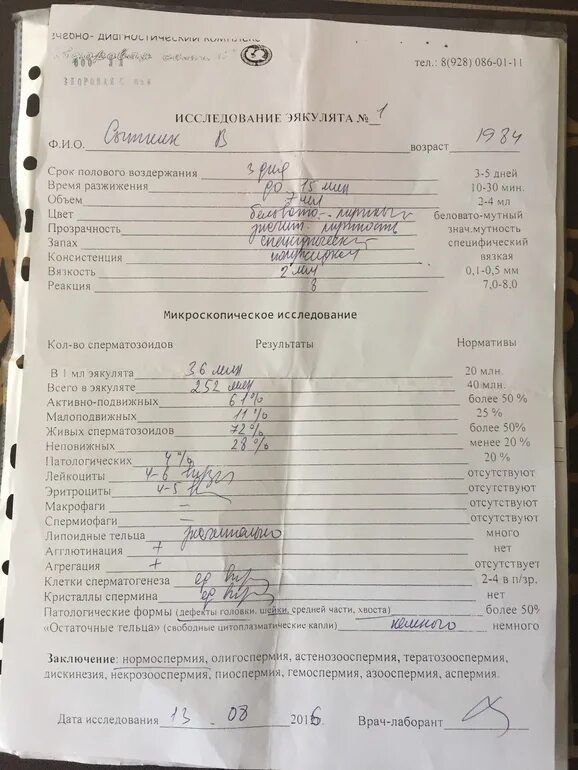 ЧЕБНО- ДИАГНОСТИЧЕСКИЙ КОМПЛЕКС
тел.: 8(928) 086-01-11
ИССЛЕДОВАНИЕ ЭЯКУЛЯТА № 1
Ф.И.О. В возраст 1984
Срок полового воздержания 3 дня 3-5 дней
Время разжижения до 15 мин 10-30 мин.
Объем 7 мл 2-4 мл
Цвет беловато-мутный беловато-мутный
Прозрачность значит. мутность знач.мутность
Запах специфический специфический
Консистенция вязкая
Вязкость 2 мм 0,1-0,5 мм
Реакция 8 7,0-8,0
Микроскопическое исследование
Кол-во сперматозоидов Результаты Нормативы
В 1 мл эякулята 36 млн 20 млн.
Всего в эякуляте 252 млн 40 млн.
Активно-подвижных 61% более 50 %
Малоподвижных 11% 25 %
Живых сперматозоидов 72% более 50%
Неповижных 28% менее 20 %
Патологических 4% 20 %
Лейкоциты 4-6 отсутствуют
Эритроциты 4-5 отсутствуют
Макрофаги – отсутствуют
Спермиофаги – отсутствуют
Липоидные тельца значительно много
Агглютинация + нет
Агрегация + отсутствует
Клетки сперматогенеза ед 2-4 в п/зр.
Кристаллы спермина ед нет
Патологические формы (дефекты головки, шейки, средней части, хвоста) более 50%
«Остаточные тельца» (свободные цитоплазматические капли) немного немного
Заключение: нормоспермия, олигоспермия, астенозооспермия, тератозооспермия,
дискинезия, некрозооспермия, пиоспермия, гемоспермия, азооспермия, аспермия.
Дата исследования 13 . 08 2016 Врач-лаборант